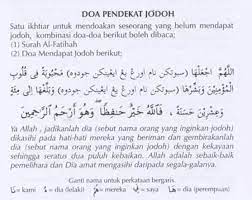 DOA PENDEKAT JODOH
Satu ikhtiar untuk mendoakan seseorang yang belum mendapat
jodoh, kombinasi doa-doa berikut boleh dibaca;
(1) Surah Al-Fatihah
(2) Doa Mendapat Jodoh berikut;
اَللّٰهُمَّ اجْعَلْهَا (سبوتكن نام اورغ يغ ايغينكن جودوه) مَحْبُوْبَةً فِي قُلُوْبِ
وَعِشْرِيْنَ حَسَنَةً ، فَاللّٰهُ خَيْرٌ حَفِظًا وَهُوَ اَرْحَمُ الرّٰحِمِيْنَ
Ya Allah, jadikanlah dia (sebut nama orang yang inginkan jodoh)
dikasihi pada hati-hati mereka yang beriman dan gembirakanlah
dia (sebut nama orang yang inginkan jodoh) dengan kekayaan
sehingga seratus dua puluh kebaikan. Allah adalah sebaik-baik
pemelihara dan Dia amat mengasihi daripada segala-galanya.
Ganti nama untuk perkataan bergaris.
= kami = dia (lelaki) = mereka = saya = dia (perempuan)